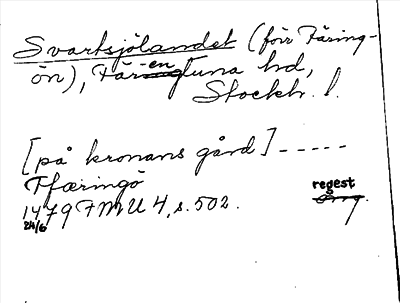 Svartsjölandet (förr Färing-
ön), Färentuna hd,
Stockh. l.
[på kronans gård] -----
Ffæringö
1479 FMU 4, s. 502. regest
24/6